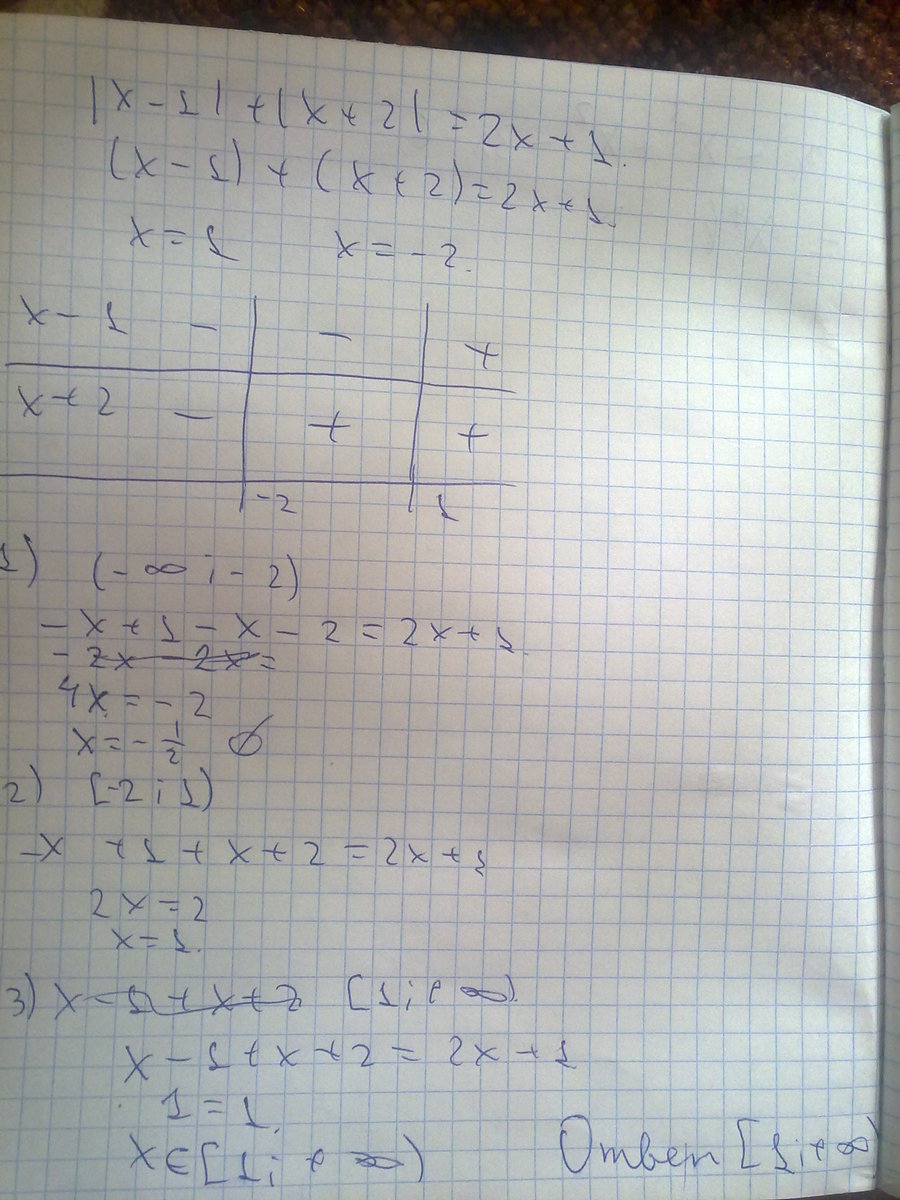 |x-1|+|x+2|=2x+1.
(x-1)+(x+2)=2x+1.
x=1 x=-2.
x-1 - - +
x+2 - + +
-2 1
1) (-∞;-2)
-x+1-x-2=2x+1.
-2x-2x=
4x=-2
x=-1/2 ∅
2) [-2;1)
-x+1+x+2=2x+1
2x=2
x=1.
3) x-1+x+2 [1;+∞).
x-1+x+2=2x+1
1=1.
x∈[1;+∞) Ответ [1;+∞)